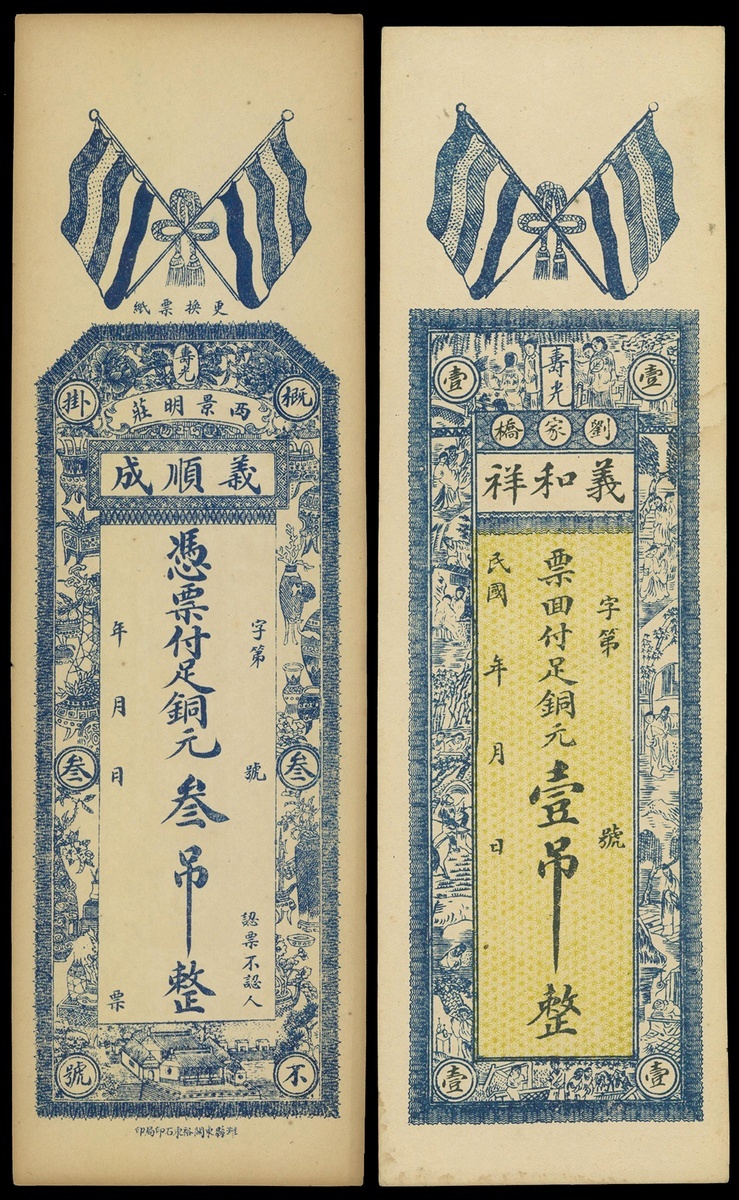 更換票紙
壽光
概
掛
西景明莊
義順成
字第 號
認票不認人
憑票付足銅元叁吊整
年 月 日 票
叁
叁
不
號
濰縣東關裕東石印局印
壹
壹
壽光
劉家橋
義和祥
字第 號
票回付足銅元壹吊整
民國 年 月 日
壹
壹